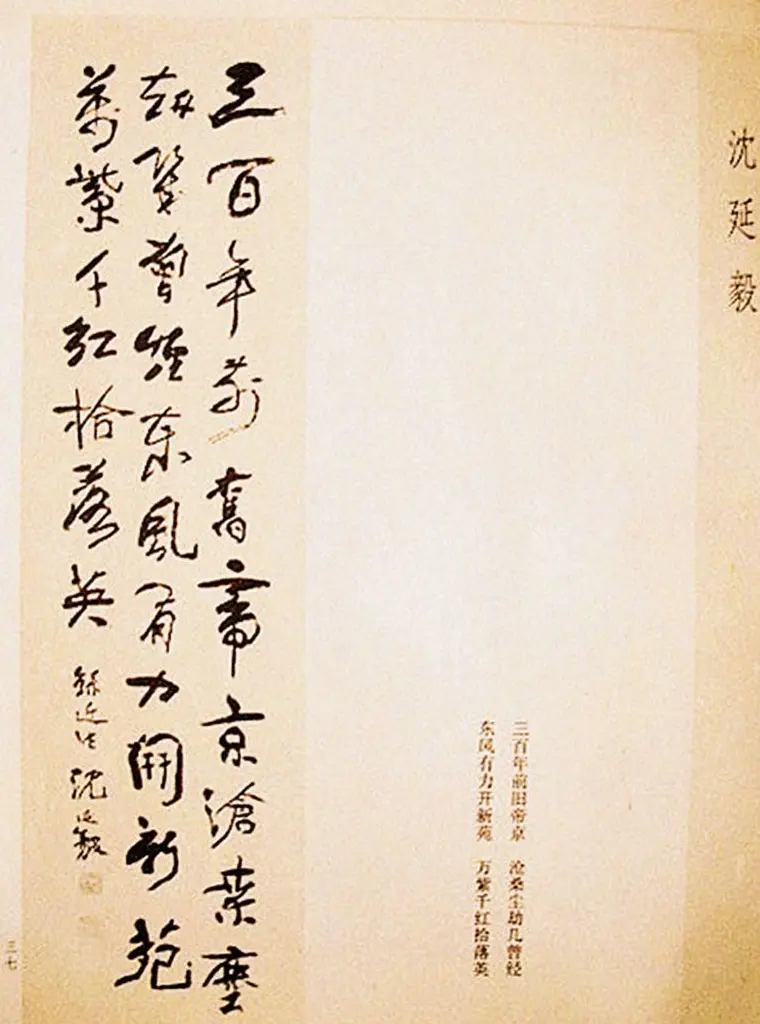 沈延毅
三百年前旧帝京 沧桑尘劫几曾经
东风有力开新苑 万紫千红拾落英
三百年前舊帝京滄桑塵
劫幾曾經東風有力開新苑
萬紫千紅拾落英 錄近作 沈延毅
三七